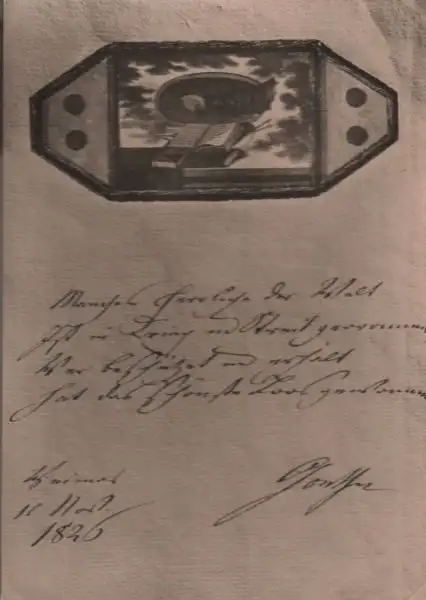 Manches Herrliche der Welt
Ist in Krieg und Streit zerronnen
Wer beschützet und erhält
Hat das schönste Loos gewonnen
Weimar
1826
Goethe